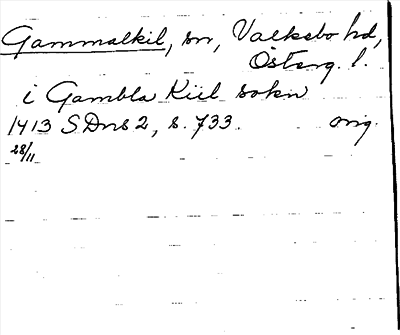 Gammalkil, sn, Valkebo hd,
Östерg. l.
i Gambla Kiil sokn
1413 SDns 2, s. 733. orig.
28/11